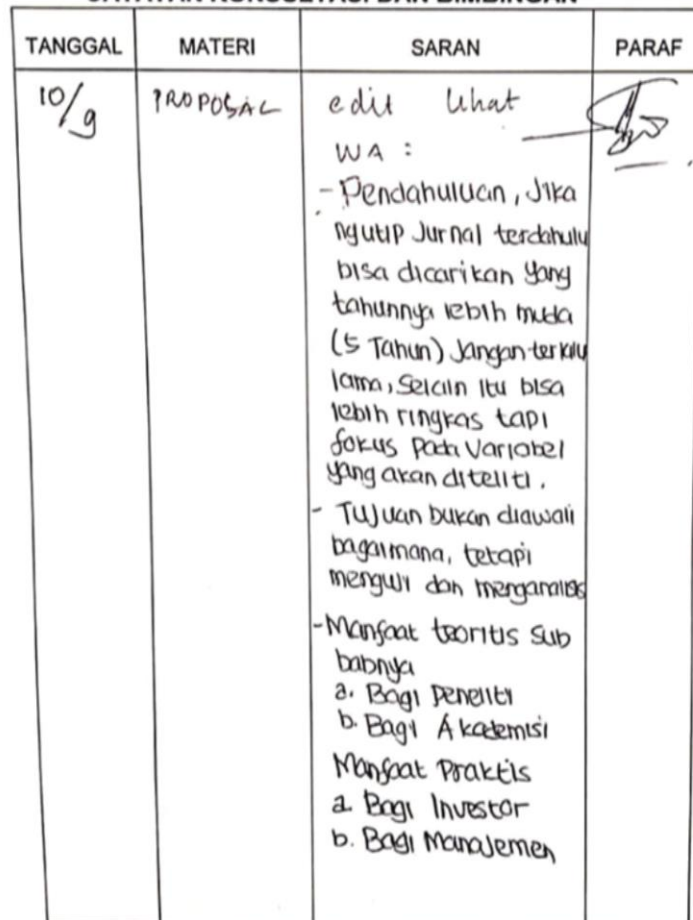 TANGGAL MATERI SARAN PARAF
10/9 PROPOSAL edit lihat
WA :
- Pendahuluan, Jika
ngutip Jurnal terdahulu
bisa dicarikan yang
tahunnya lebih muda
(5 Tahun) Jangan terlalu
lama, Selain itu bisa
lebih ringkas tapi
fokus pada Variabel
yang akan diteliti.
- Tujuan bukan diawali
bagaimana, tetapi
menguji dan menganalisis
- Manfaat teoritis Sub
babnya
a. Bagi Peneliti
b. Bagi Akademisi
Manfaat Praktis
a. Bagi Investor
b. Bagi Manajemen